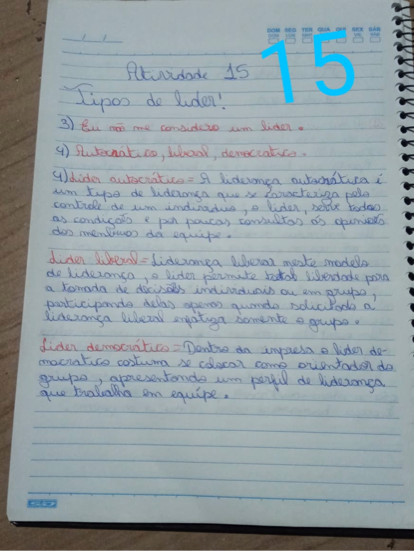 DOM SEG TER QUA QUI SEX SAB
15
Atividade 15
Tipos de lider!
3) Eu não me considero um lider.
4) Autocratico, liberal, democratico.
4) Lider autocrático = A liderança autocrática é
um tipo de liderança que se caracteriza pelo
controle de um individuo, o lider, sobre todas
as condições e por poucas consultas ás opiniões
dos membros da equipe.
Lider liberal = Liderança liberal neste modelo
de liderança, o lider permite total liberdade para
a tomada de decisões individuais ou em grupo,
participando delas apenas quando solicitado a
liderança liberal enfatiza somente o grupo.
Lider democrático = Dentro da impresa o lider de-
mocratico costuma se colocar como orientador do
grupo, apresentando um perfil de liderança
que trabalha em equipe.